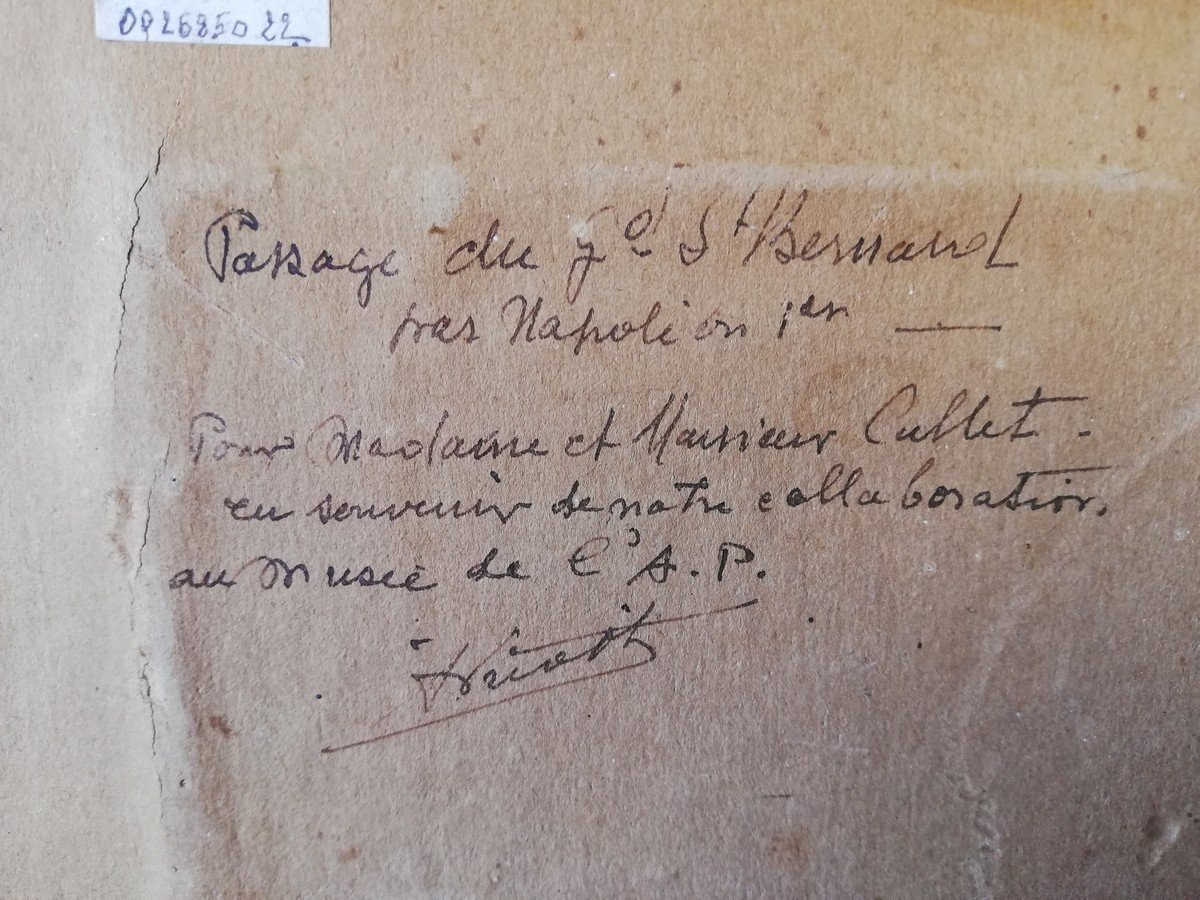 0926850 22
Passage du gd St Bernard
par Napoléon 1er
Pour Madame et Monsieur Callet.
en souvenir de notre collaboration.
au Musée de l'A.P.